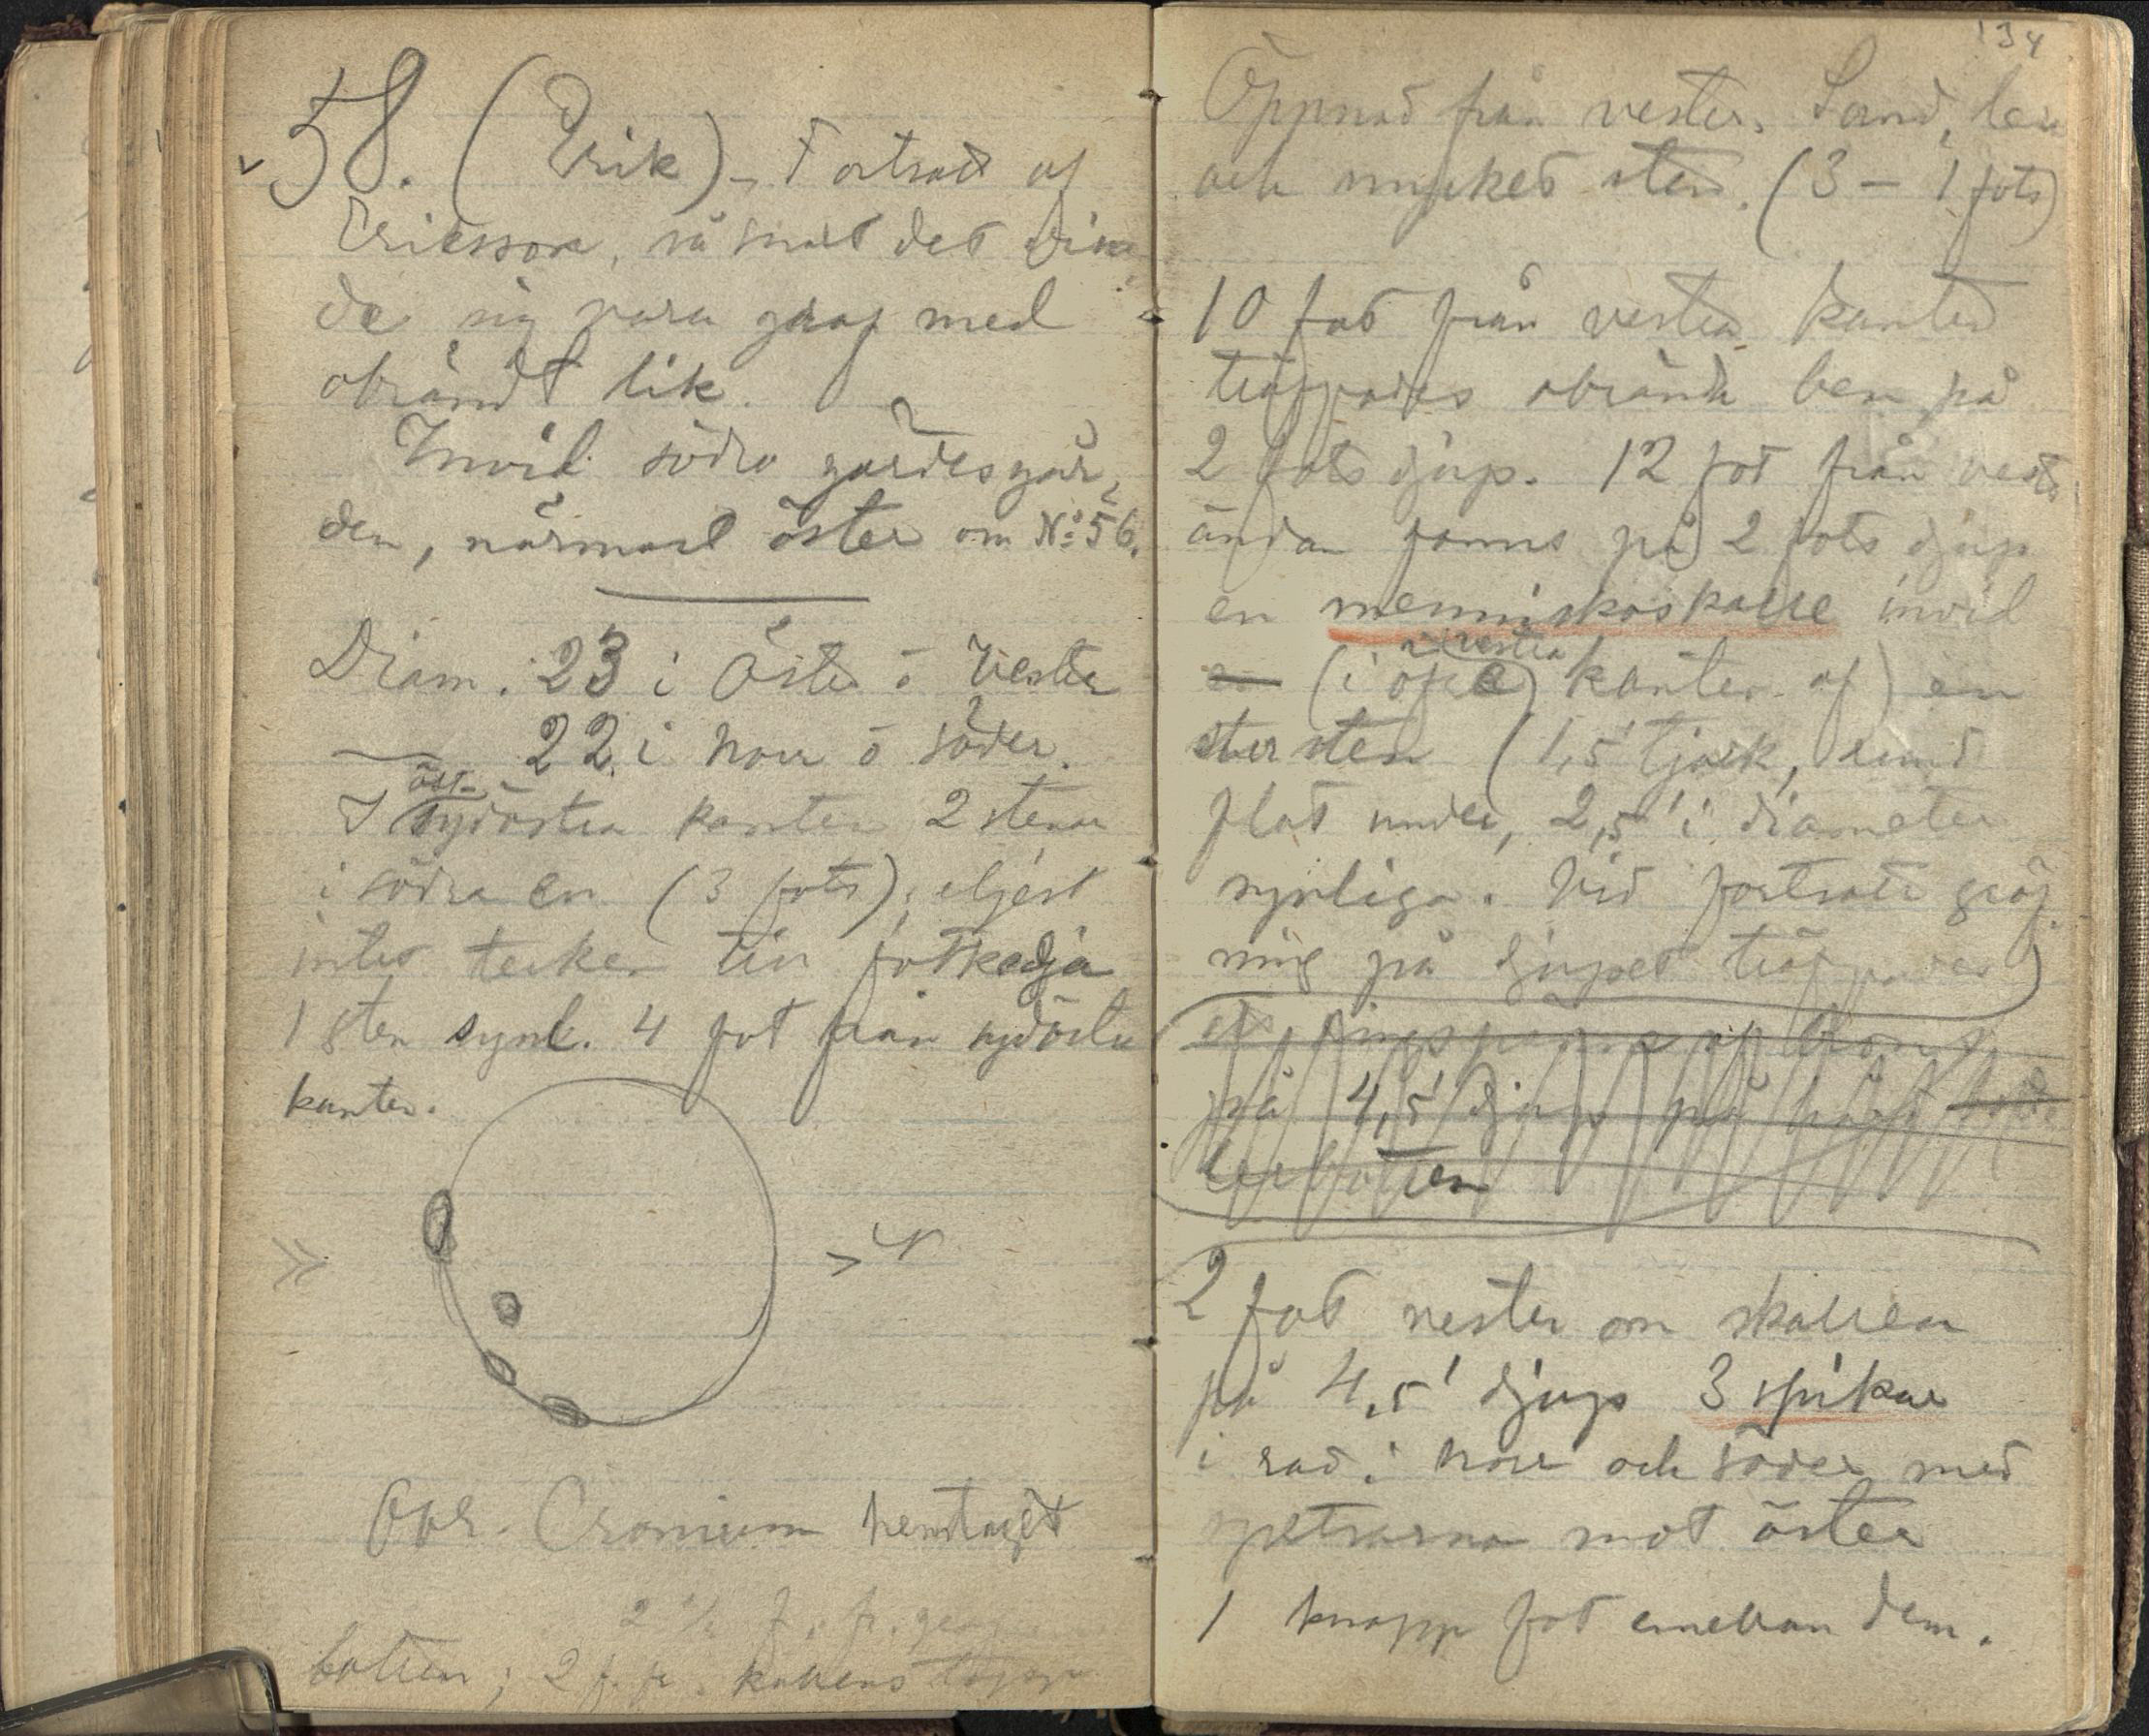 58. (Erik) – Fortsatt af
Ericsson, så snart det visa
de sig vara graf med
obrändt lik.
Invid södra gärdesgår,
den, närmast öster om No: 56.
Diam. 23 i Öster ö Vester
— 22 i norr ö söder.
öst-
I sydöstra kanten 2 stenar
i södra en (3 fots); eljest
intet tecken till fotkedja
1 sten synl. 4 fot från sydöstra
kanten.
N
Obr. Cranium hemtaget
2 1/2 f. fr. graf
botten; 2 f. fr. kullens topp
134
Öppnad från vester. Sand, lera
och mycket sten. (3 – 1 fots)
10 fot från vestra kanten
träffades obrända ben på
2 fots djup. 12 fot från vestr
ändan fanns på 2 fots djup
en menniskoskalle invid
vestra
(i kanten af) en
stor sten (1,5' tjock, rund
flat under, 2,5' i diameter
synliga. Vid fortsatt gräf
ning på djupet träffades
på 4,5' djup på hård
lerbotten
2 fot vester om skallen
på 4,5' djup 3 spikar
i rad i norr och söder med
spetsarna mot öster
1 knapp fot emellan dem.